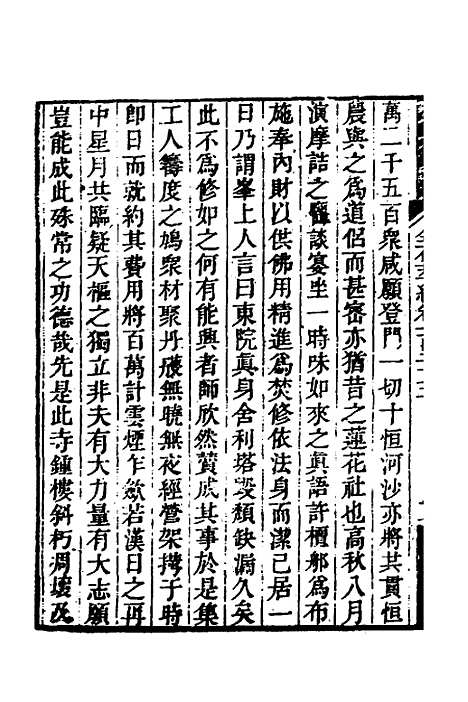 萬二千五百衆咸願登門一切十恒河沙亦將其貫恒
農與之爲道侶而甚密亦猶昔之蓮花社也高秋八月
演摩詰之談宴坐一時味如來之眞語許檀郍爲布
施奉內財以供佛用精進爲焚修依法身而潔己居一
日乃謂峯上人言曰東院眞身舍利塔毀頹缺漏久矣
此不爲修如之何有能興者師欣然贊成其事於是集
工人籌度之鳩衆材聚丹雘無曉無夜經營架搆子時
卽日而就約其費用將百萬計雲煙乍斂若漢日之再
中星月共臨疑天樞之獨立非夫有大力量有大志願
豈能成此殊常之功德哉先是此寺鍾樓斜朽凋壞及